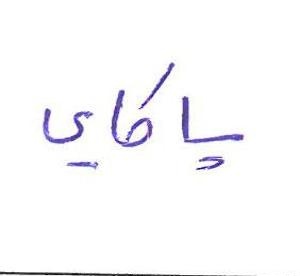 پاکاي